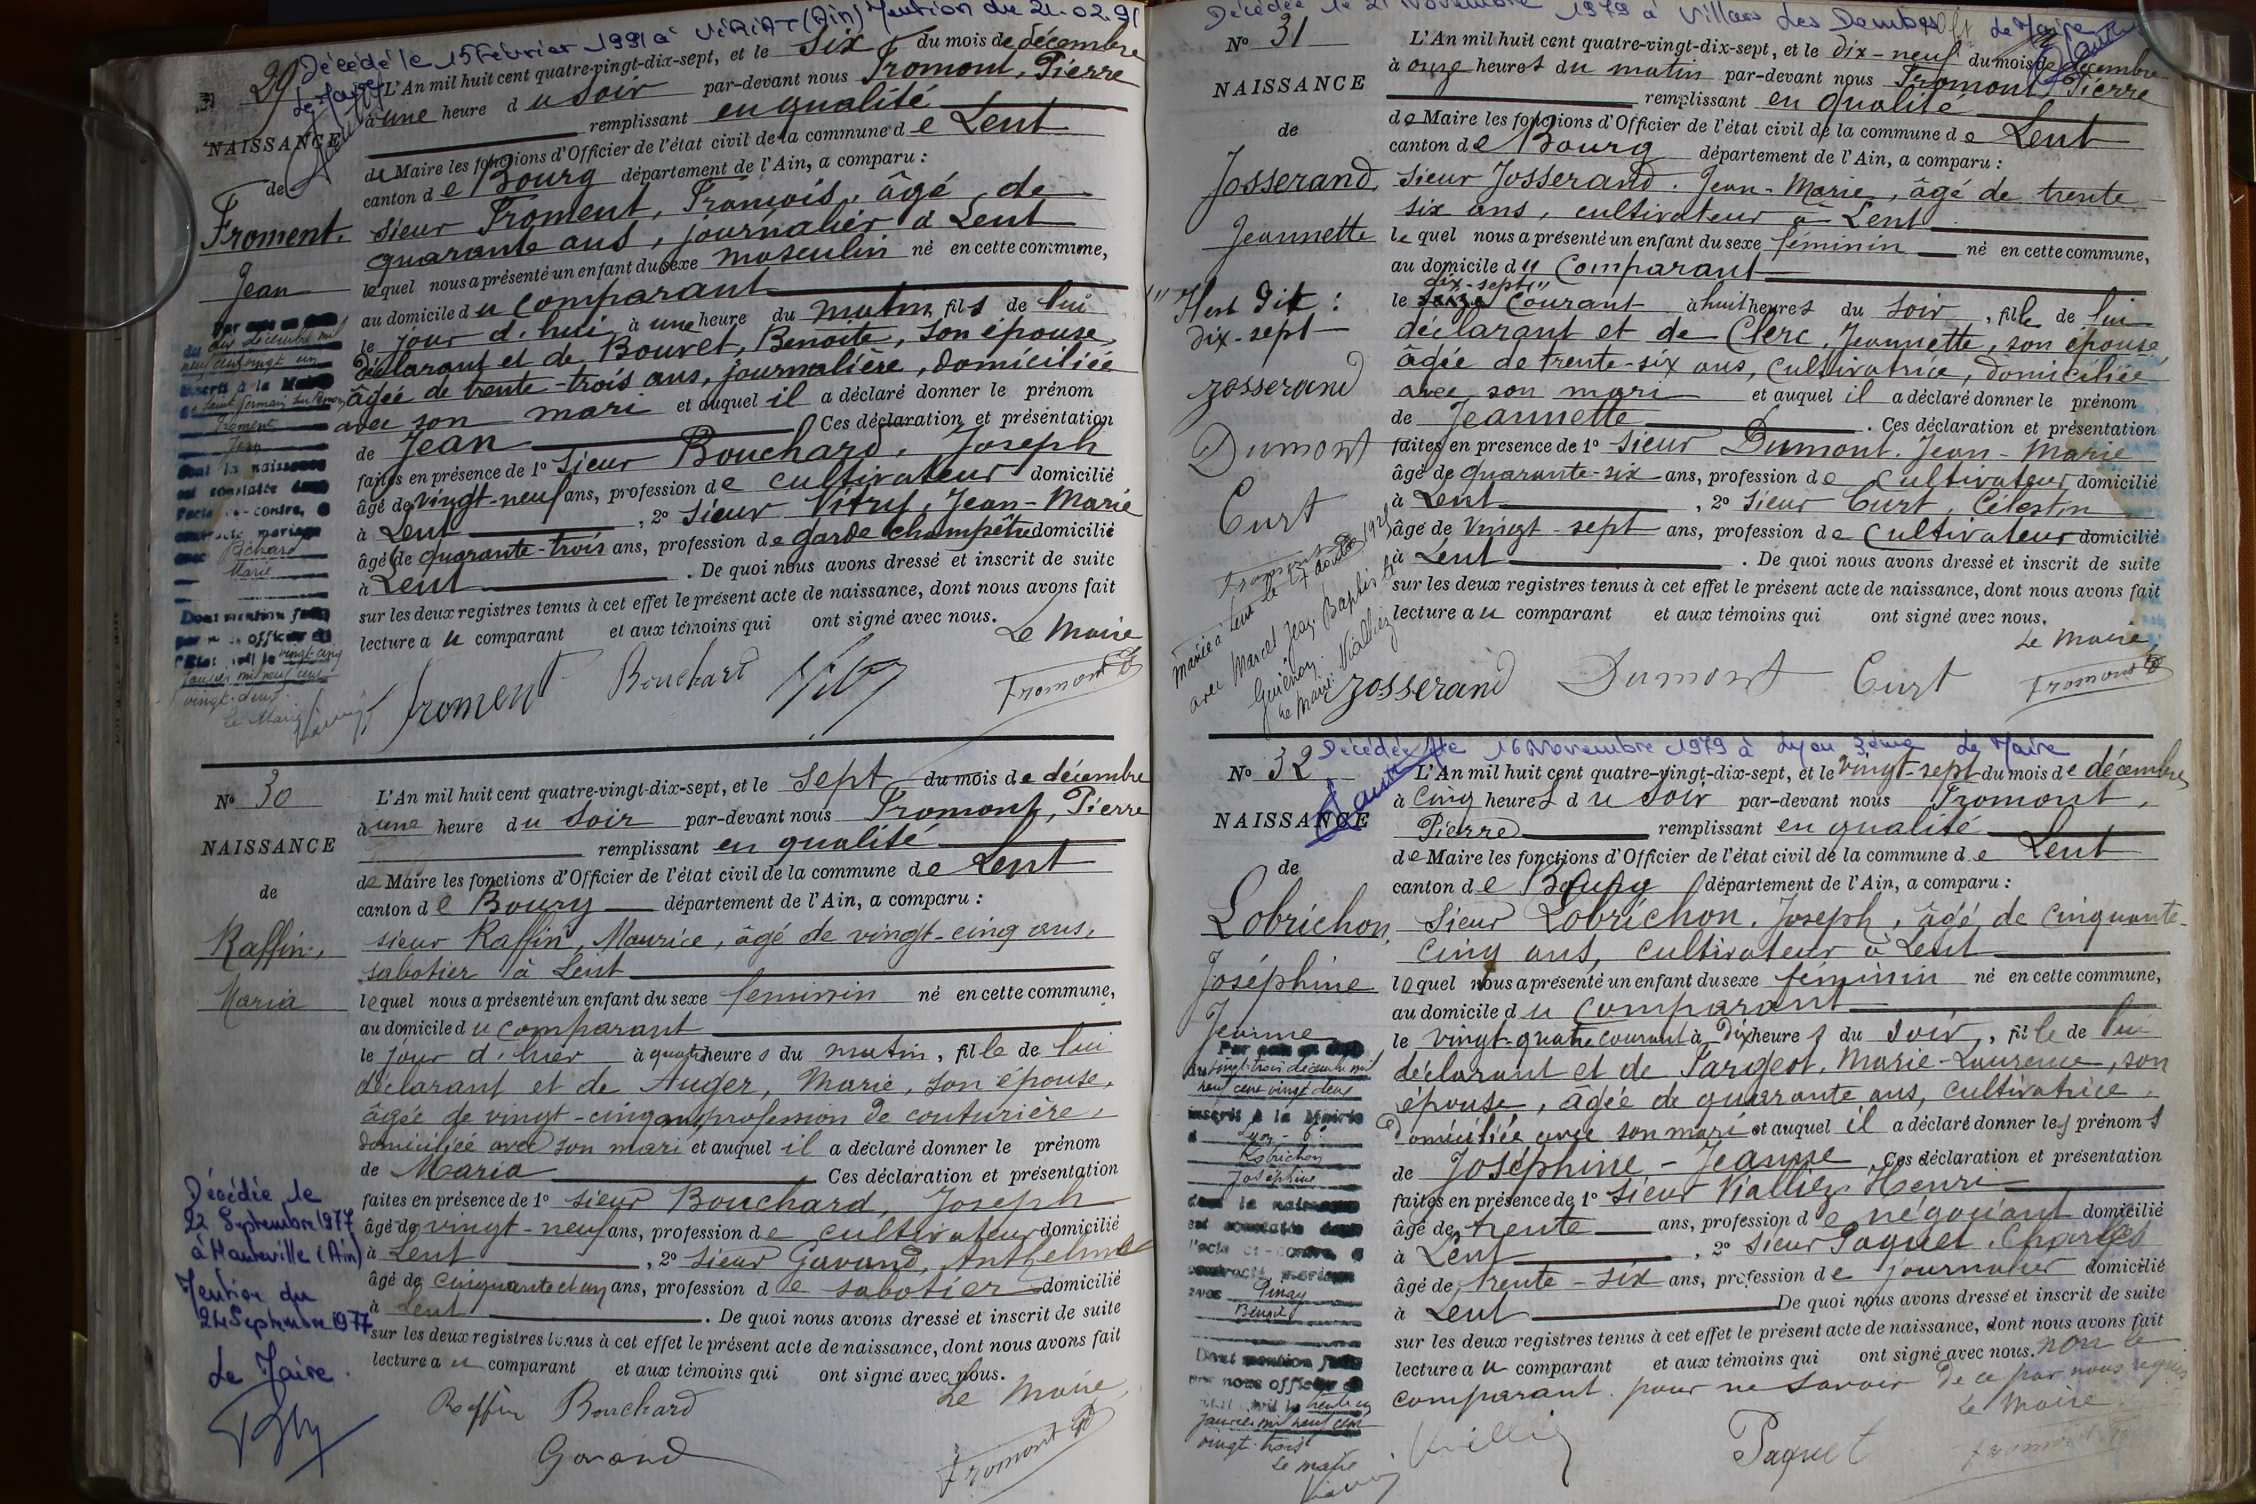 Décédé le 15 Février 1991 à VIRIAT (Ain) Mention du 21.02.91
Le Maire
29
NAISSANCE
de
Froment.
Jean
L'An mil huit cent quatre-vingt-dix-sept, et le six du mois de décembre
à une heure du soir par-devant nous Fromont, Pierre
remplissant en qualité
de Maire les fonctions d'Officier de l'état civil de la commune de Lent
canton de Bourg département de l'Ain, a comparu :
sieur Froment, François, âgé de
quarante ans, journalier à Lent
lequel nous a présenté un enfant du sexe masculin né en cette commune,
au domicile du comparant
le jour d'hui à une heure du matin, fils de lui
déclarant et de Bouvet, Benoite, son épouse,
âgée de trente-trois ans, journalière, domiciliée
avec son mari et auquel il a déclaré donner le prénom
de Jean Ces déclaration et présentation
faites en présence de 1º sieur Bouchard, Joseph
âgé de vingt-neuf ans, profession de cultivateur domicilié
à Lent, 2º sieur Vitry, Jean-Marie
âgé de quarante-trois ans, profession de garde champêtre domicilié
à Lent. De quoi nous avons dressé et inscrit de suite
sur les deux registres tenus à cet effet le présent acte de naissance, dont nous avons fait
lecture au comparant et aux témoins qui ont signé avec nous.
Le Maire
Froment Bouchard Vitry Fromont
Par acte en date
du dix décembre mil
neuf cent vingt un
inscrit à la Mairie
Froment
Jean
dont la naissance
est constatée dans
l'acte ci-contre, a
contracté mariage
avec Pichard
Marie
Dont mention faite
par nous officier de
l'Etat civil le vingt cinq
Janvier mil neuf cent
vingt-deux.
Le Maire
No 30
NAISSANCE
de
Raffin,
Maria
L'An mil huit cent quatre-vingt-dix-sept, et le sept du mois de décembre
à une heure du soir par-devant nous Fromont, Pierre
remplissant en qualité
de Maire les fonctions d'Officier de l'état civil de la commune de Lent
canton de Bourg département de l'Ain, a comparu :
sieur Raffin, Maurice, âgé de vingt-cinq ans,
sabotier à Lent
lequel nous a présenté un enfant du sexe feminin né en cette commune,
au domicile du comparant
le jour d'hier à quatre heures du matin, fille de lui
déclarant et de Auger, Marie, son épouse,
âgée de vingt-cinq ans, profession de couturière,
domiciliée avec son mari et auquel il a déclaré donner le prénom
de Maria Ces déclaration et présentation
faites en présence de 1º sieur Bouchard, Joseph
âgé de vingt-neuf ans, profession de cultivateur domicilié
à Lent, 2º sieur Gavand, Anthelme
âgé de cinquante et un ans, profession de sabotier domicilié
à Lent. De quoi nous avons dressé et inscrit de suite
sur les deux registres tenus à cet effet le présent acte de naissance, dont nous avons fait
lecture au comparant et aux témoins qui ont signé avec nous.
Le Maire,
Raffin Bouchard
Gavand Fromont
Décédée le
22 Septembre 1977
à Hauteville (Ain)
Mention du
24 Septembre 1977
Le Maire.
Décédée le 21 Novembre 1979 à Villars les Dombes Le Maire
No 31
NAISSANCE
de
Josserand,
Jeannette
L'An mil huit cent quatre-vingt-dix-sept, et le dix-neuf du mois de décembre
à onze heures du matin par-devant nous Fromont, Pierre
remplissant en qualité
de Maire les fonctions d'Officier de l'état civil de la commune de Lent
canton de Bourg département de l'Ain, a comparu :
sieur Josserand, Jean-Marie, âgé de trente
six ans, cultivateur à Lent
lequel nous a présenté un enfant du sexe féminin né en cette commune,
au domicile du comparant
dix-sept"
le courant à huit heures du soir, fille de lui
déclarant et de Clerc, Jeannette, son épouse
âgée de trente-six ans, cultivatrice, domiciliée
avec son mari et auquel il a déclaré donner le prénom
de Jeannette. Ces déclaration et présentation
faites en présence de 1º sieur Dumont, Jean-Marie
âgé de quarante-six ans, profession de cultivateur domicilié
à Lent, 2º sieur Curt, Célestin
âgé de vingt-sept ans, profession de cultivateur domicilié
à Lent. De quoi nous avons dressé et inscrit de suite
sur les deux registres tenus à cet effet le présent acte de naissance, dont nous avons fait
lecture au comparant et aux témoins qui ont signé avec nous.
Le Maire,
Josserand Dumont Curt Fromont
dix-sept
Josserand
Dumont
Curt
Fromont
Mariée à Lent le
avec Marcel Jean Baptiste
Le Maire Vialliez
Décédée le 16 Novembre 1979 à Lyon 3ème Le Maire
No 32
NAISSANCE
de
Lobrichon,
Joséphine
Jeanne
L'An mil huit cent quatre-vingt-dix-sept, et le vingt-sept du mois de décembre
à cinq heures du soir par-devant nous Fromont,
Pierre remplissant en qualité
de Maire les fonctions d'Officier de l'état civil de la commune de Lent
canton de Bourg département de l'Ain, a comparu :
sieur Lobrichon, Joseph, âgé de cinquante-
cinq ans, cultivateur à Lent
lequel nous a présenté un enfant du sexe féminin né en cette commune,
au domicile du comparant
le vingt-quatre courant à dix heures du soir, fille de lui
déclarant et de Pargeot, Marie-Laurence, son
épouse, âgée de quarante ans, cultivatrice,
domiciliée avec son mari et auquel il a déclaré donner les prénoms
de Joséphine-Jeanne Ces déclaration et présentation
faites en présence de 1º sieur Vialliez Henri
âgé de trente ans, profession de négociant domicilié
à Lent, 2º sieur Paquet, Charles
âgé de trente-six ans, profession de journalier domicilié
à Lent De quoi nous avons dressé et inscrit de suite
sur les deux registres tenus à cet effet le présent acte de naissance, dont nous avons fait
lecture au comparant et aux témoins qui ont signé avec nous. non le
comparant pour ne savoir de ce par nous requis
Le Maire
Paquet Fromont
Par acte en date
du vingt-trois décembre mil
neuf cent vingt deux
inscrit à la Mairie
Lyon-6e
Lobrichon
Joséphine
dont la naissance
est constatée dans
l'acte ci-contre, a
contracté mariage
avec Pinay
Benoit
Dont mention faite
par nous officier de
l'Etat civil le
Janvier mil neuf cent
vingt-trois
Le maire